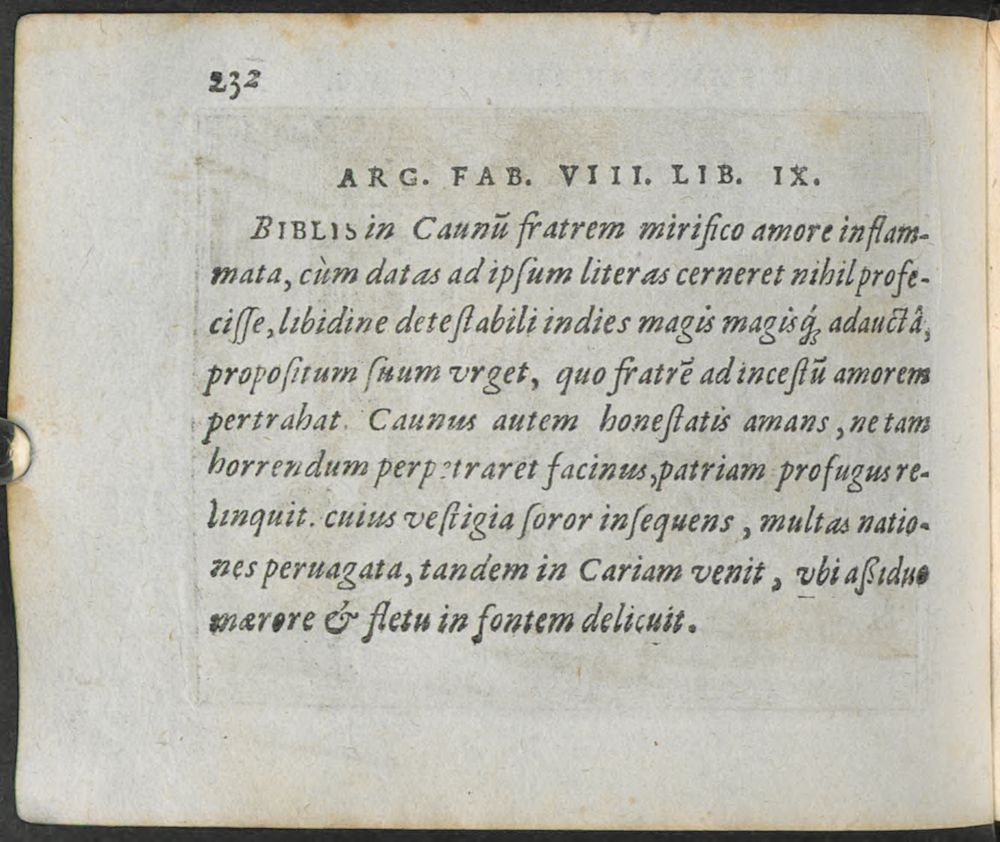 232
ARG. FAB. VIII. LIB. IX.
BIBLIS in Caunū fratrem mirifico amore inflam-
mata, cùm datas ad ipſum literas cerneret nihil profe-
ciſſe, libidine deteſtabili indies magis magisq́; adauctâ,
propoſitum ſuum vrget, quo fratrē ad inceſtū amorem
pertrahat. Caunus autem honeſtatis amans, ne tam
horrendum perpetraret facinus, patriam profugus re-
linquit. cuius veſtigia ſoror inſequens, multas natio-
nes peruagata, tandem in Cariam venit, vbi aßiduo
mærore & fletu in fontem delicuit.